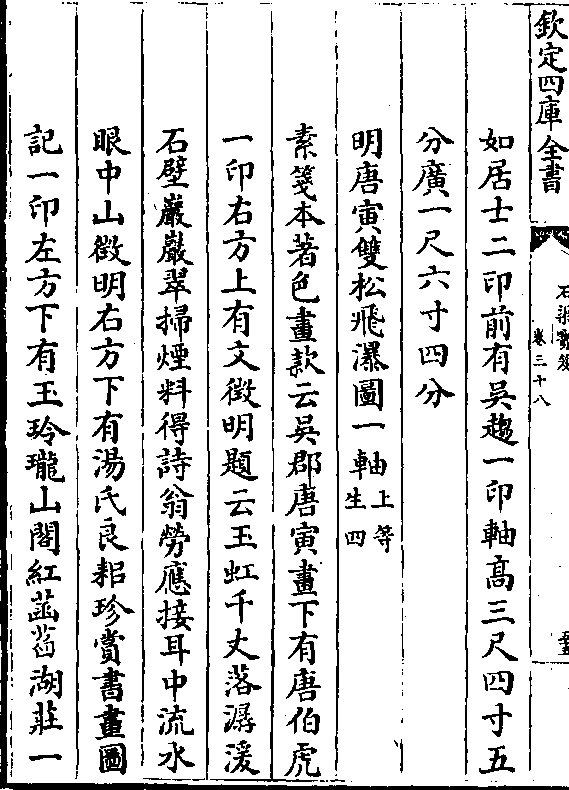 欽定四庫全書
卷三十八
如居士二印前有吳趨一印軸高三尺四寸五
分廣一尺六寸四分
明唐寅雙松飛瀑圖一軸上等
生四
素箋本著色畫款云吳郡唐寅畫下有唐伯虎
一印右方上有文徵明題云玉虹千丈落潺湲
石壁巖巖翠掃煙料得詩翁勞應接耳中流水
眼中山徵明右方下有湯氏良耜珍賞書畫圖
記一印左方下有玉玲瓏山閣紅菡萏湖莊一